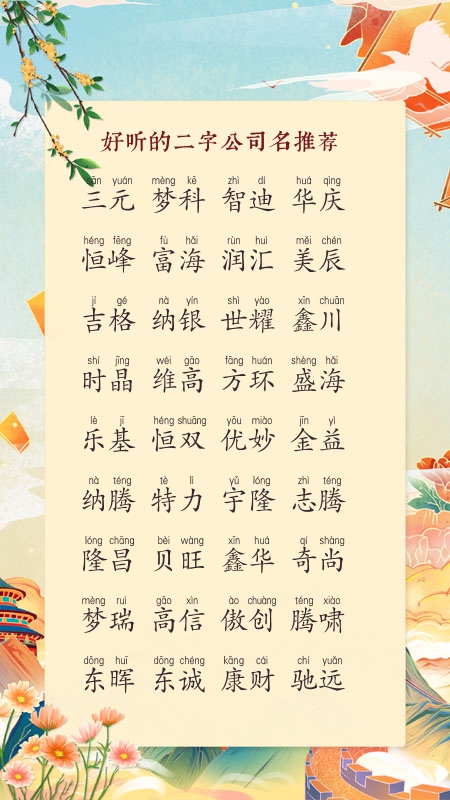 好听的二字公司名推荐
sān yuán mèng kē zhì dí huá qìng
三元 梦科 智迪 华庆
héng fēng fù hǎi rùn huì měi chén
恒峰 富海 润汇 美辰
jí gé nà yín shì yào xīn chuān
吉格 纳银 世耀 鑫川
shí jīng wéi gāo fāng huán shèng hǎi
时晶 维高 方环 盛海
lè jī héng shuāng yōu miào jīn yì
乐基 恒双 优妙 金益
nà téng tè lì yǔ lóng zhì téng
纳腾 特力 宇隆 志腾
lóng chāng bèi wàng xīn huá qí shàng
隆昌 贝旺 鑫华 奇尚
mèng ruì gāo xìn ào chuàng téng xiào
梦瑞 高信 傲创 腾啸
dōng huī dōng chéng kāng cái chí yuǎn
东晖 东诚 康财 驰远